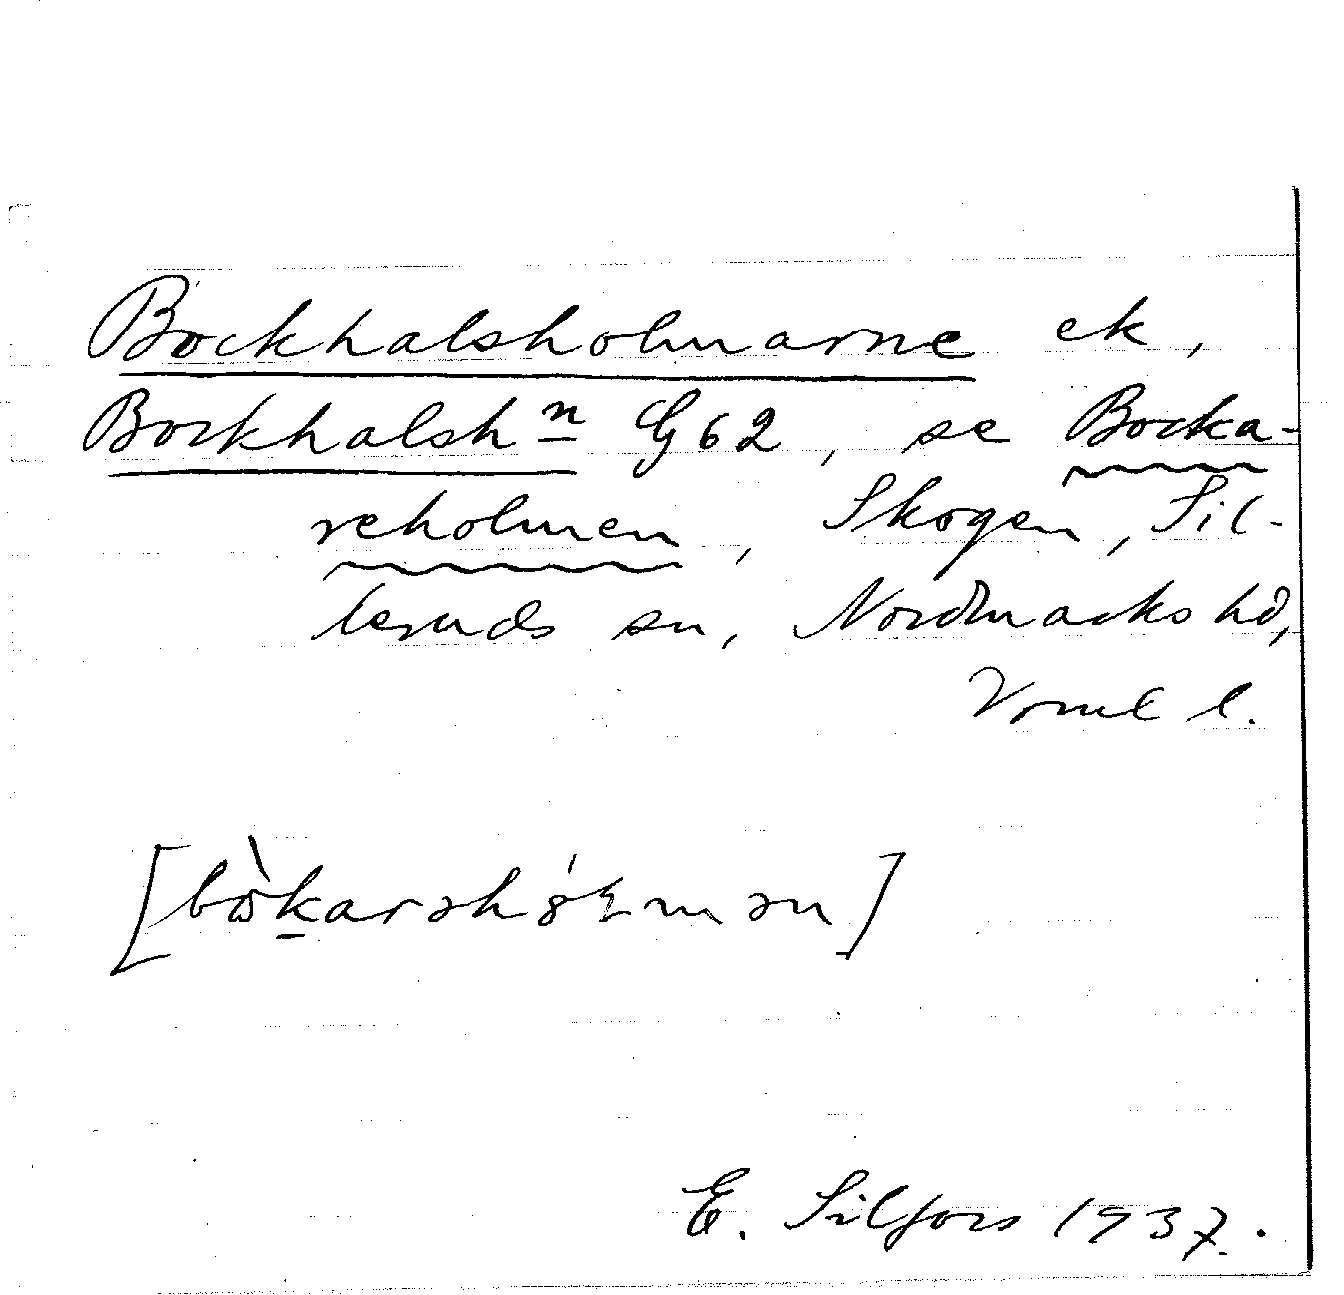 Bockhalsholmarne ek,
Bockhalshn G62, se Bocka-
reholmen, Skogen, Sil-
leruds sn, Nordmarks hd,
Vrml l.
[bòkarəhólmən]
E. Silfors 1937.